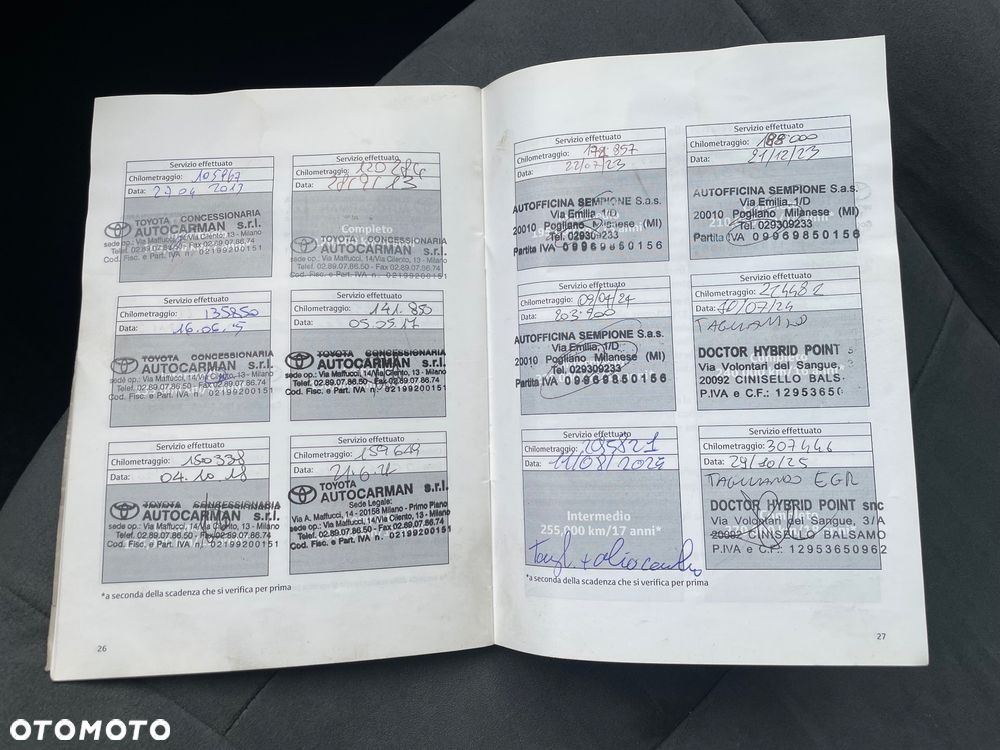 Servizio effettuato
Chilometraggio: 105967
Data: 27 04 2013
TOYOTA CONCESSIONARIA
AUTOCARMAN s.r.l.
sede op.: Via Maffucci, 14/Via Cilento, 13 - Milano
Telef. 02.89.07.86.50 - Fax 02.89.07.86.74
Cod. Fisc. e Part. IVA n. 02199200151
Servizio effettuato
Chilometraggio: 120284
Data:
Completo
TOYOTA CONCESSIONARIA
AUTOCARMAN s.r.l.
sede op.: Via Maffucci, 14/Via Cilento, 13 - Milano
Telef. 02.89.07.86.50 - Fax 02.89.07.86.74
Cod. Fisc. e Part. IVA n. 02199200151
Servizio effettuato
Chilometraggio: 135850
Data:
TOYOTA CONCESSIONARIA
AUTOCARMAN s.r.l.
sede op.: Via Maffucci, 14/Via Cilento, 13 - Milano
Telef. 02.89.07.86.50 - Fax 02.89.07.86.74
Cod. Fisc. e Part. IVA n. 02199200151
Servizio effettuato
Chilometraggio: 141.850
Data: 05.05.17
TOYOTA CONCESSIONARIA
AUTOCARMAN s.r.l.
sede op.: Via Maffucci, 14/Via Cilento, 13 - Milano
Telef. 02.89.07.86.50 - Fax 02.89.07.86.74
Cod. Fisc. e Part. IVA n. 02199200151
Servizio effettuato
Chilometraggio: 150338
Data: 04.10.18
TOYOTA CONCESSIONARIA
AUTOCARMAN s.r.l.
sede op.: Via Maffucci, 14/Via Cilento, 13 - Milano
Telef. 02.89.07.86.50 - Fax 02.89.07.86.74
Cod. Fisc. e Part. IVA n. 02199200151
Servizio effettuato
Chilometraggio: 159649
Data:
TOYOTA
AUTOCARMAN s.r.l.
Sede Legale:
Via A. Maffucci, 14 - 20158 Milano - Primo Piano
sede op.: Via Maffucci, 14/Via Cilento, 13 - Milano
Telef. 02.89.07.86.50 - Fax 02.89.07.86.74
Cod. Fisc. e Part. IVA n. 02199200151
*a seconda della scadenza che si verifica per prima
26
Servizio effettuato
Chilometraggio: 178 857
Data: 22/07/23
AUTOFFICINA SEMPIONE S.a.s.
Via Emilia, 1/D
20010 Pogliano Milanese (MI)
Tel. 029309233
Partita IVA 09969850156
Servizio effettuato
Chilometraggio: 188.000
Data: 21/12/23
AUTOFFICINA SEMPIONE S.a.s.
Via Emilia, 1/D
20010 Pogliano Milanese (MI)
Tel. 029309233
Partita IVA 09969850156
Servizio effettuato
Chilometraggio: 09/04/24
Data: 203.900
AUTOFFICINA SEMPIONE S.a.s.
Via Emilia, 1/D
20010 Pogliano Milanese (MI)
Tel. 029309233
Partita IVA 09969850156
Servizio effettuato
Chilometraggio: 214482
Data: 30/07/24
TAGLIANDO
DOCTOR HYBRID POINT s
Via Volontari del Sangue,
20092 CINISELLO BALS
P.IVA e C.F.: 12953650
Servizio effettuato
Chilometraggio: 295821
Data: 11/08/2025
Intermedio
255,000 km/17 anni*
Tagl. + olio cambio
Servizio effettuato
Chilometraggio: 307446
Data: 29/10/25
TAGLIANDO EGR
DOCTOR HYBRID POINT snc
Via Volontari del Sangue, 3/A
20092 CINISELLO BALSAMO
P.IVA e C.F.: 12953650962
*a seconda della scadenza che si verifica per prima
27
OTOMOTO